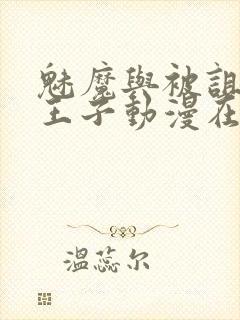 魅魔與被詛
王子動漫在
溫蕊尔